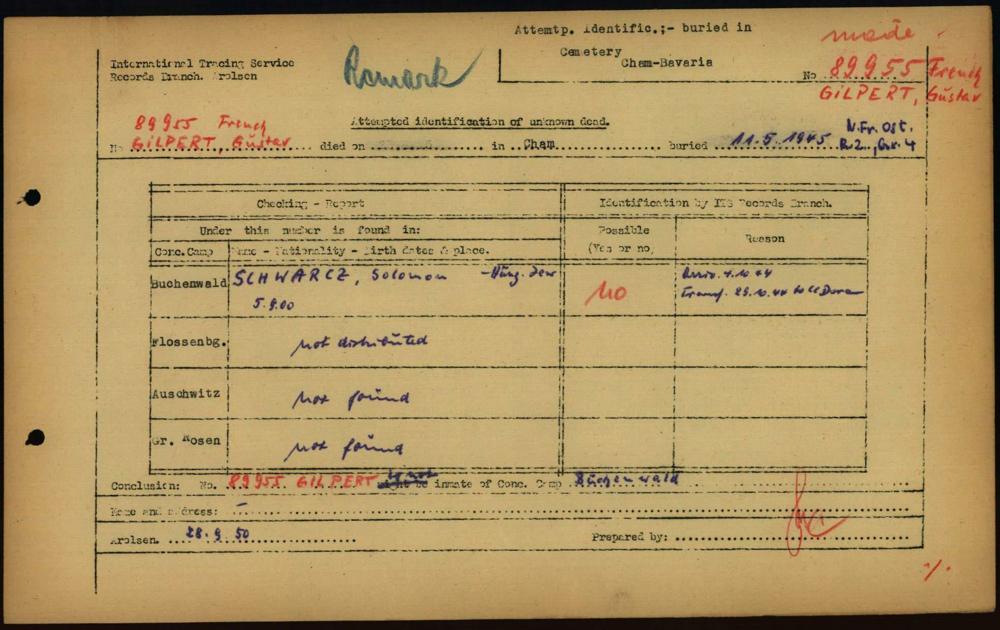 Attemtp. Identific.;- buried in
Cemetery
Cham-Bavaria
made
No 89955 French
GILPERT, Gustav
International Tracing Service
Records Branch. Arolsen
Remark
Attempted identification of unknown dead.
89955 French
No GILPERT, Gustav died on in Cham buried 11.5.1945 N.Fr. Ost.
R.2., Gr. 4
Checking - Report
Identification by ITS Records Branch.
Under this number is found in:
Possible
(Yes or no)
Reason
Conc.Camp
Name - Nationality - Birth dates & place.
Buchenwald
SCHWARCZ, Solomon - Hung. Jew
5.9.00
no
Arriv. 4.10.44
Transf. 29.10.44 to CC Dora
Flossenbg.
not distributed
Auschwitz
not found
Gr. Rosen
not found
Conclusion: No. 89955 GILPERT be inmate of Conc. Camp Buchenwald
Home and address: -
Arolsen. 28.9.50
Prepared by: